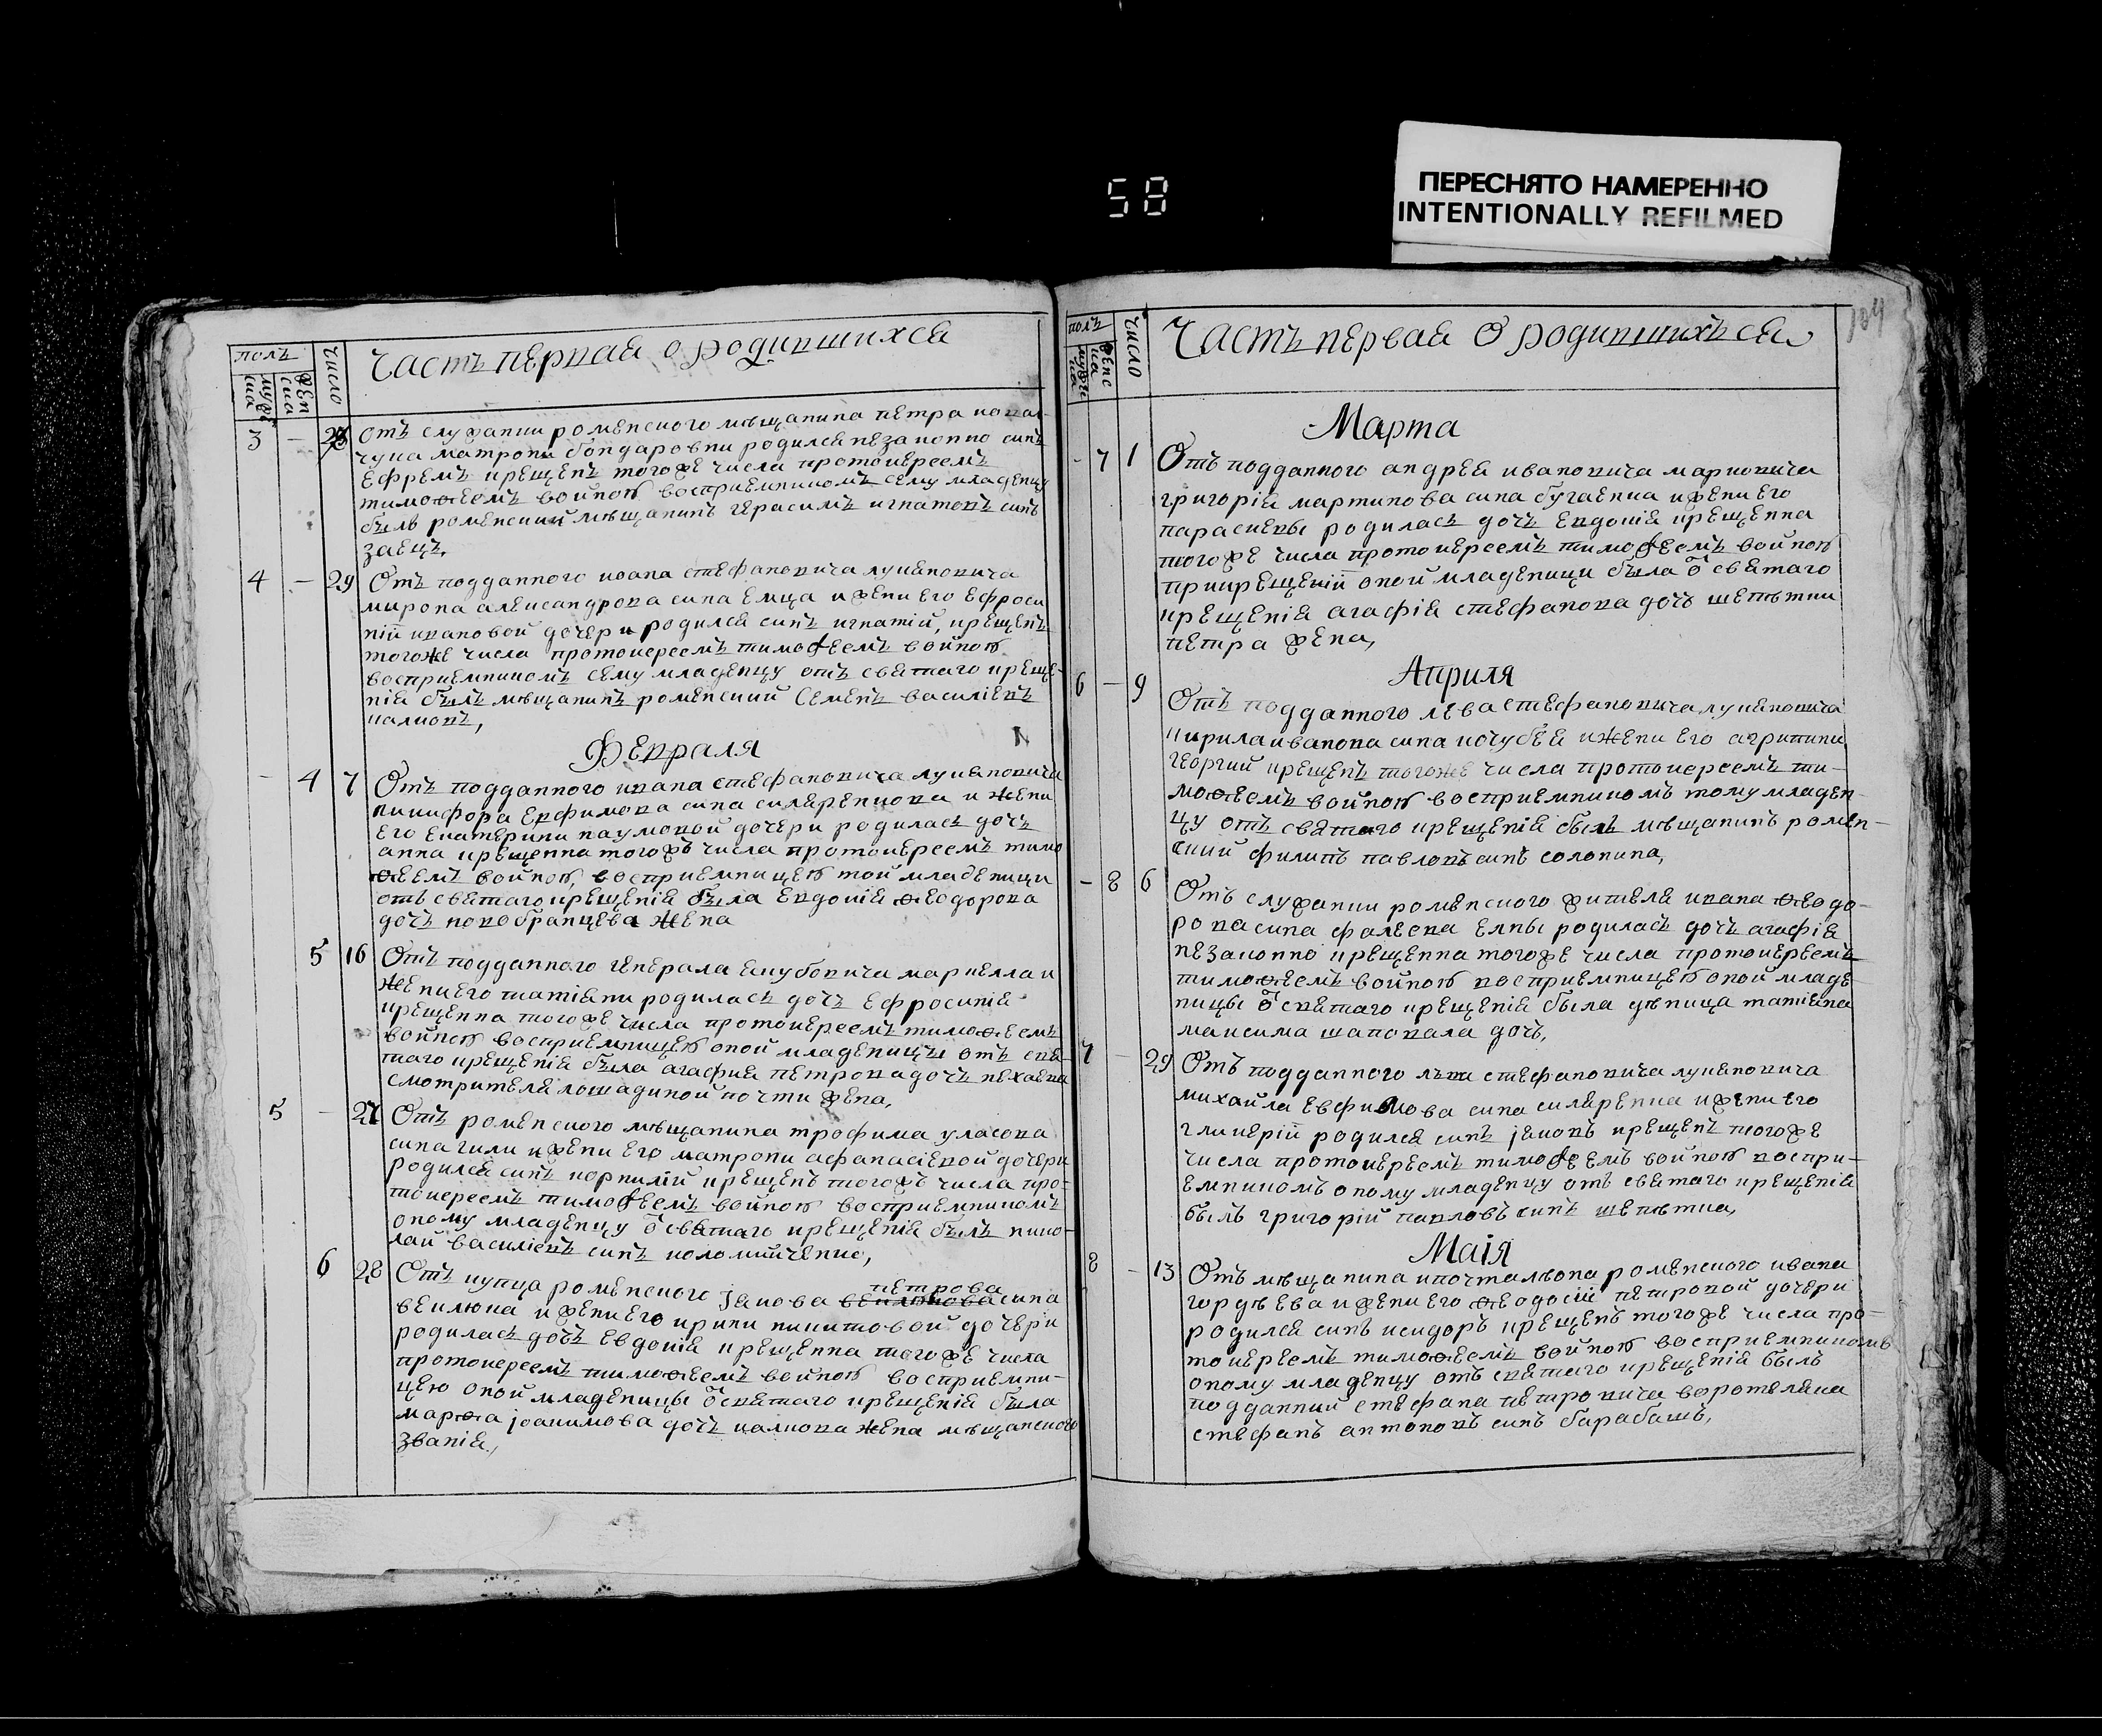 58
ПЕРЕСНЯТО НАМЕРЕННО
INTENTIONALLY REFILMED
полъ
мужеска
женска
число
Часть первая о родившихся
3 – 28 отъ служанки роменского мѣщанина петра кова-
чука матрони бондаровни родился незаконно синъ
Ефремъ крещенъ тогоже числа протоиереемъ
тимоѳеемъ войною восприемникомъ сему младенцу
былъ роменский мѣщанинъ герасимъ игнатовъ синъ
заецъ,
4 – 29 Отъ подданного ивана стефановича лукановича
мирона александрова сина емца и жени его ефроси
нїи ивановой дочери родился синъ игнатїй, крещенъ
тогоже числа протоиереемъ тимоѳеемъ войною
восприемникомъ сему младенцу отъ святаго креще-
нїя былъ мѣщанинъ роменский Семенъ василїевъ
калиовъ,
Февраля
– 4 7 Отъ подданного ивана стефановича лукановича
никифора Евфимова сина скляренкова и жени
его Екатерини наумовой дочери родилась дочь
анна крещенна тогожъ числа протоиереемъ тимо
ѳеемъ войною, восприемницею той младеници
отъ святаго крещенїя была Евдокїя ѳеодорова
дочь новобранцева жена
5 16 Отъ подданного генерала Екубовича маркелла и
жени его татїяни родилась дочь ефросинїя
крещенна тогоже числа протоиереемъ тимоѳеемъ
войною восприемницею оной младеницы отъ свя-
таго крещенїя была агафия петрова дочь нехаева
смотрителя лошадиной почти жена,
5 – 27 Отъ роменского мѣщанина трофима уласова
сина гили и жени его матрони афанасїевой дочери
родился синъ корнилїй крещенъ тогожъ числа про-
тоиереемъ тимоѳеемъ войною восприемникомъ
оному младенцу ѿ святаго крещенїя былъ нико-
лай василїевъ синъ коломийченко,
6 28 Отъ купца роменского Iакова петрова сина
векльюка и жени его ирини никитовой дочери
родилась дочь Евдокїя крещенна тогоже числа
протоиереемъ тимоѳеемъ войною восприемни-
цею оной младеницы ѿ святаго крещенїя была
марѳа iоакимова дочь калиова жена мѣщанского
званїя,
104
полъ
мужеска
женска
число
Часть первая о родившихъся
Марта
– 7 1 Отъ подданного андрея ивановича марковича
григорїя мартинова сина бугаенка и жени его
параскевы родилась дочь евдокїя крещенна
тогоже числа протоиереемъ тимоѳеемъ войною
при крещенїй оной младеници была ѿ святаго
крещенїя агафїя стефанова дочь шепѣтки
петра жена,
Априля
6 – 9 Отъ подданного лева стефановича лукановича
кирила иванова сина кочубея и жени его агрипини
георгий крещенъ тогоже числа протоиереемъ ти-
моѳеемъ войною восприемникомъ тому младен-
цу отъ святаго крещенїя былъ мѣщанинъ ромен-
ский филипъ павловъ синъ солонина,
– 8 6 Отъ служанки роменского жителя ивана ѳеодо-
рова сина фалеева елны родилась дочь агафїя
незаконно крещенна тогоже числа протоиереемъ
тимоѳеемъ войною восприемницею оной младе
ницы ѿ святаго крещенїя была дѣвица татїяна
максима шаповала дочь,
7 – 29 Отъ подданного лъва стефановича лукановича
михайла евфимова сина скляренка и жени его
гликерїй родился синъ iаковъ крещенъ тогоже
числа протоиереемъ тимоѳеемъ войною воспри-
емникомъ оному младенцу отъ святаго крещенїя
былъ григорїй павловъ синъ шепѣтка,
Маїя
8 – 13 Отъ мѣщанина и почталѣона роменского ивана
гордѣева и жени его ѳеодосїи петровой дочери
родился синъ исидоръ крещенъ тогоже числа про-
тоиереемъ тимоѳеемъ войною восприемникомъ
оному младенцу отъ святаго крещенїя былъ
подданний стефана петровича воротеляка
стефанъ антоновъ синъ барабашъ,